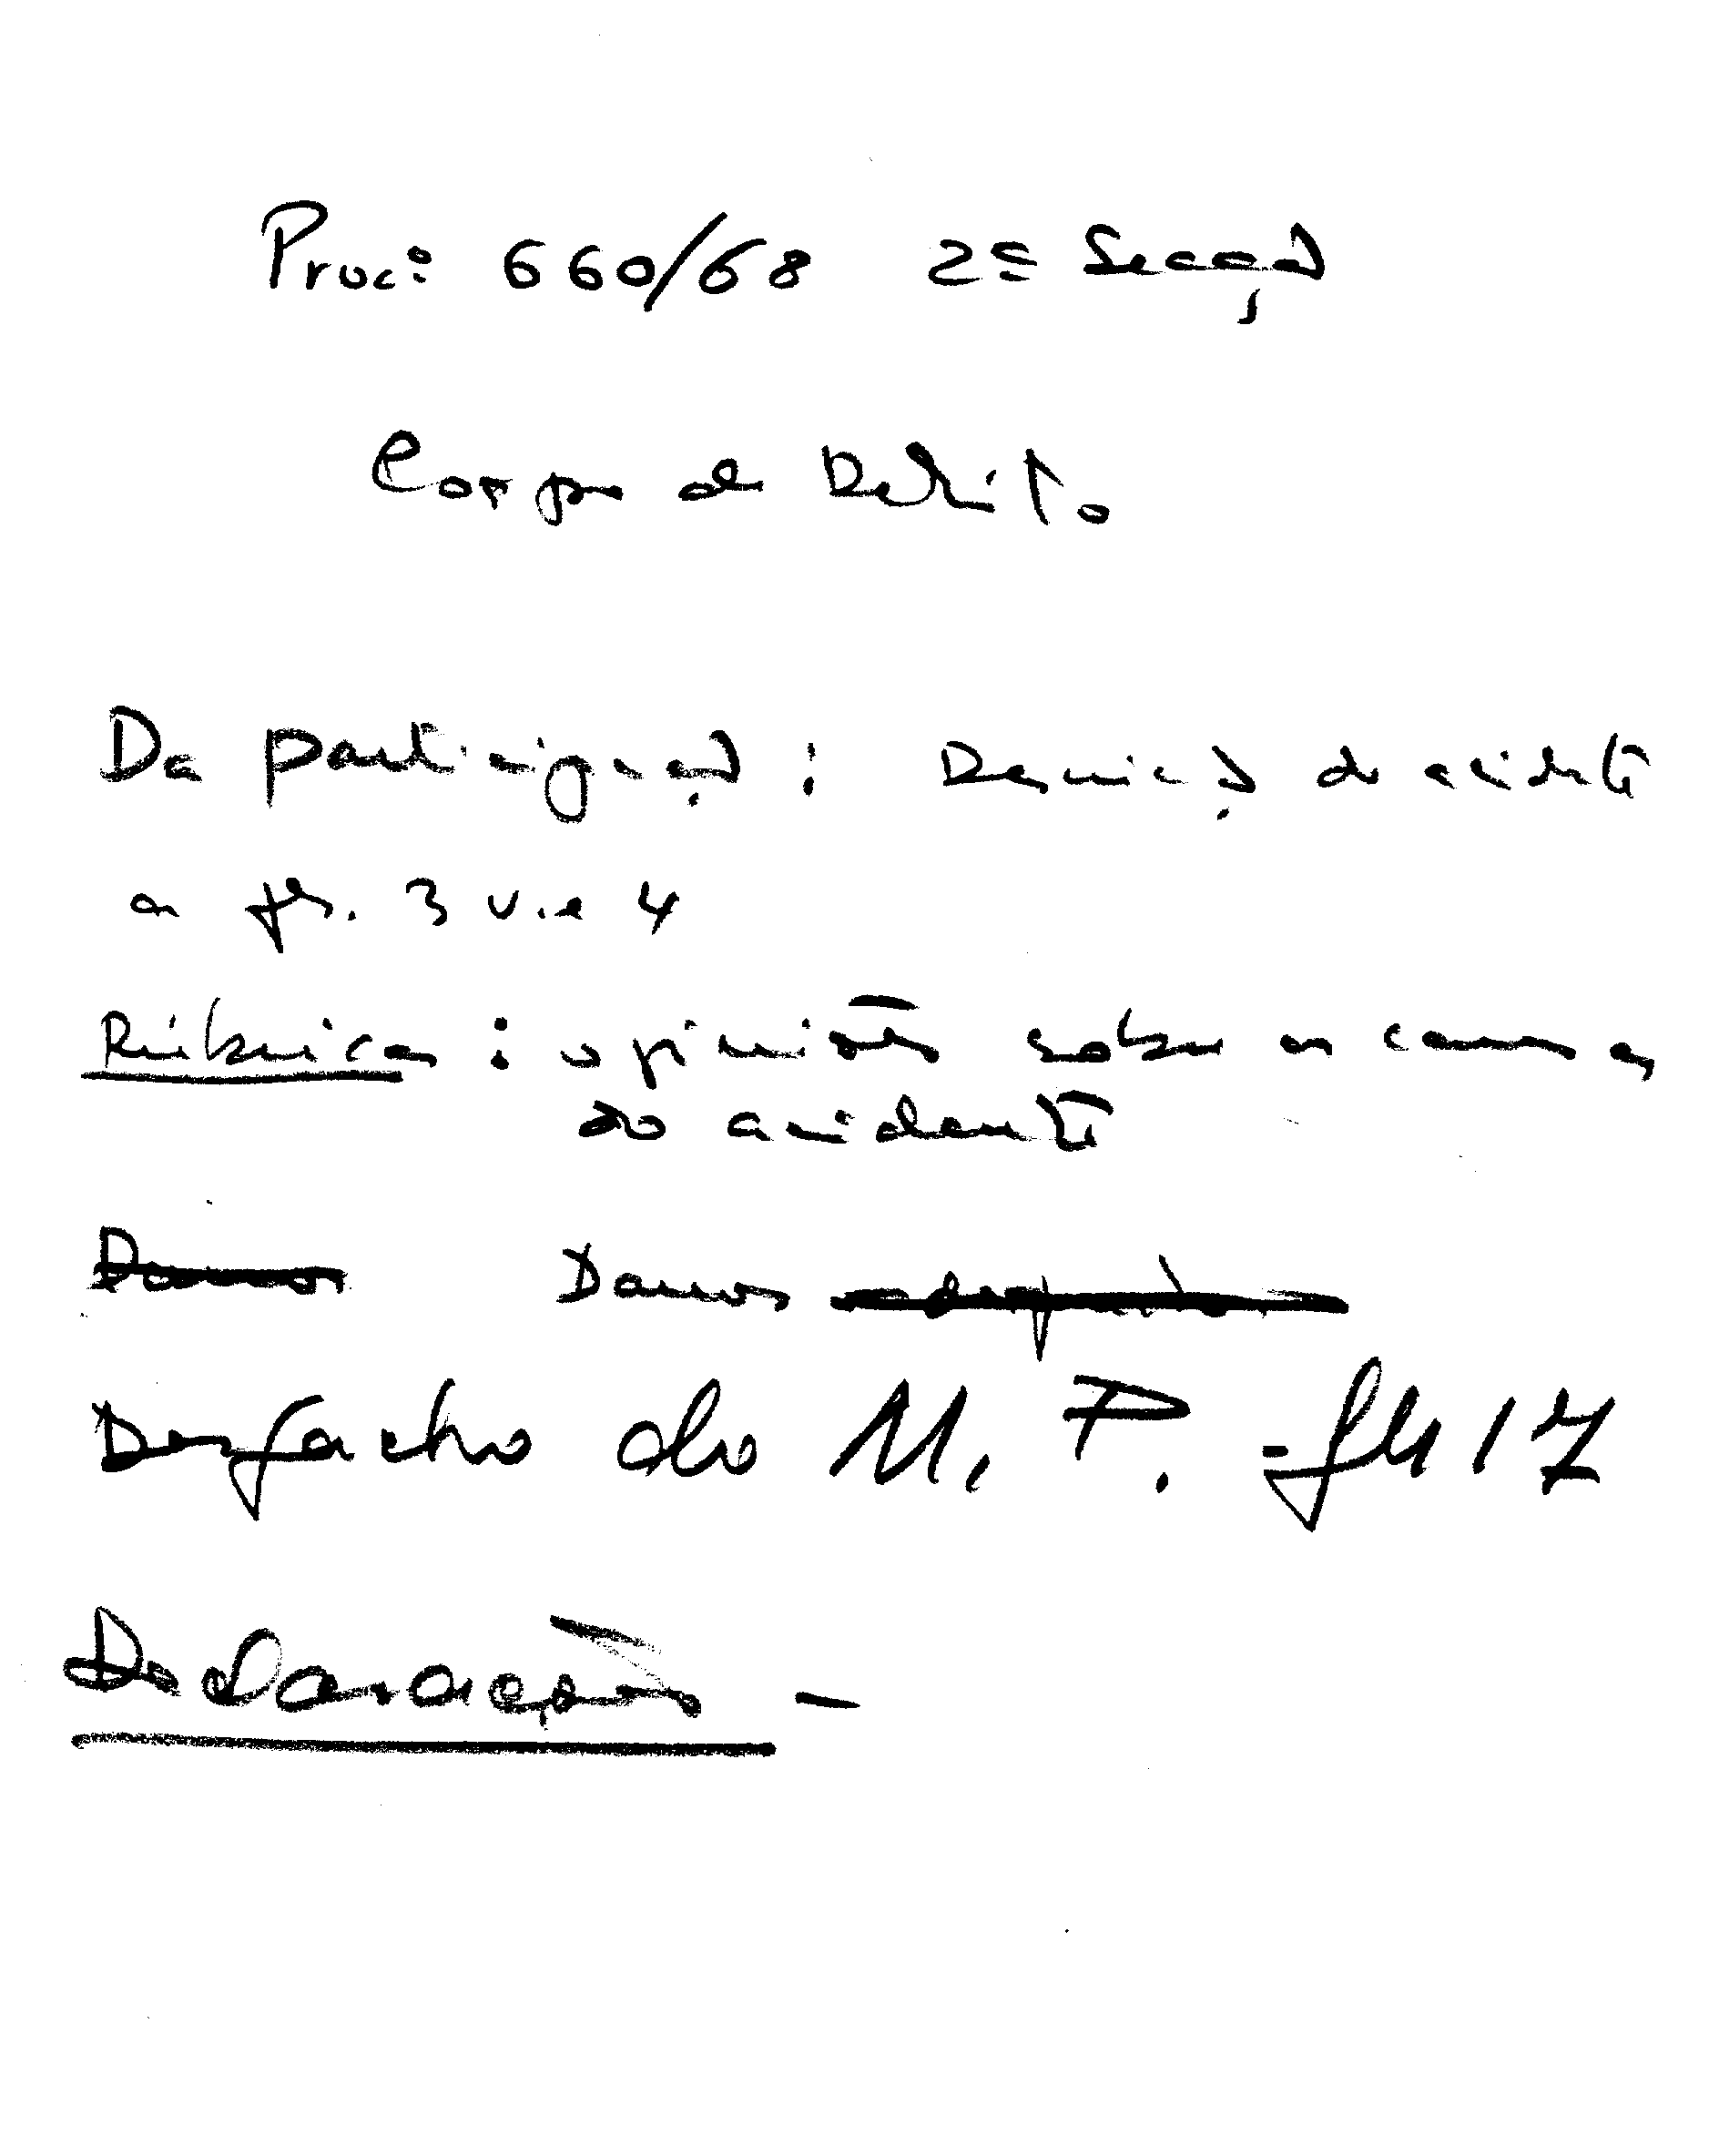 Proc: 660/68 2ª Secção
Corpo de Delito
Da participação: Descrição do acidente
a fls. 3 v. e 4
Rúbrica: opiniões sobre as causas
do acidente
Danos Danos
Despacho do M. P. fls 17
Declarações -